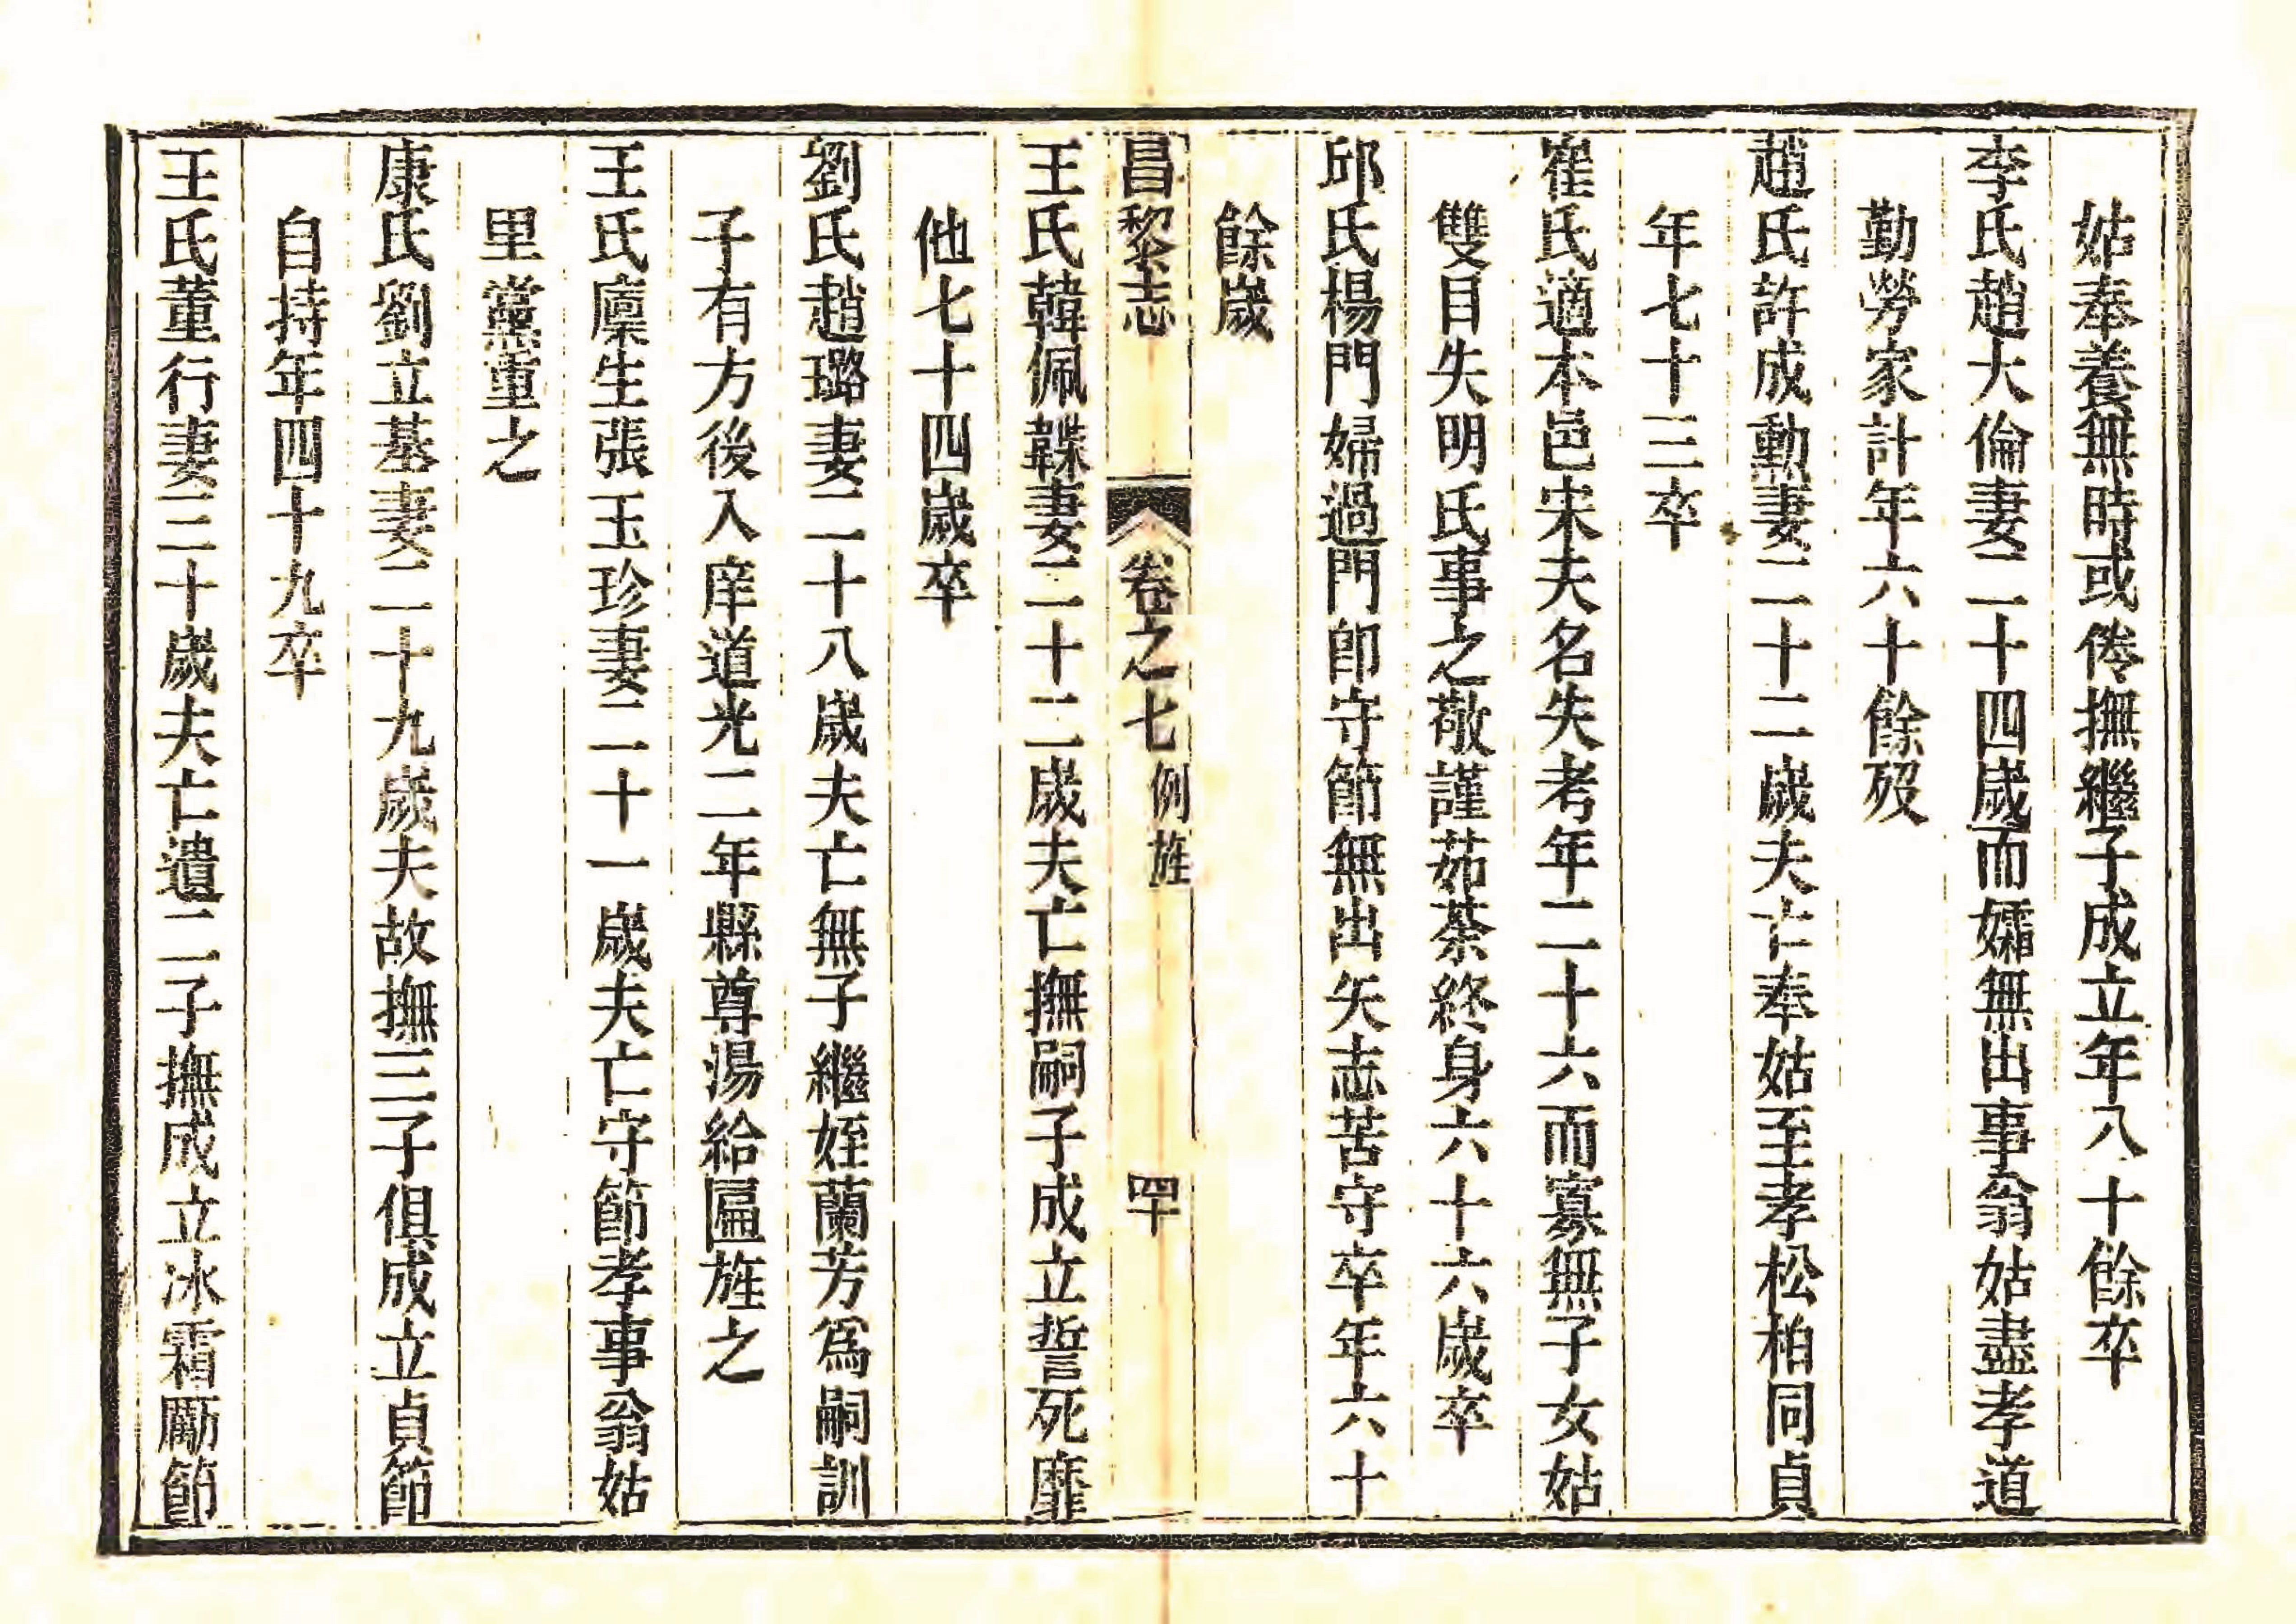 姑奉養無時或倦撫繼子成立年八十餘卒
李氏趙大倫妻二十四歲而孀無出事翁姑盡孝道
勤勞家計年六十餘歿
趙氏許成勳妻二十二歲夫亡奉姑至孝松柏同貞
年七十三卒
崔氏適本邑宋夫名失考年二十六而寡無子女姑
雙目失明氏事之敬謹茹荼終身六十六歲卒
邱氏楊門婦過門卽守節無出矢志苦守卒年六十
餘歲
昌黎志
卷之七 例旌
四十
王氏韓佩韘妻二十二歲夫亡撫嗣子成立誓死靡
他七十四歲卒
劉氏趙璐妻二十八歲夫亡無子繼姪蘭芳爲嗣訓
子有方後入庠道光二年縣尊湯給匾旌之
王氏廩生張玉珍妻二十一歲夫亡守節孝事翁姑
里黨重之
康氏劉立基妻二十九歲夫故撫三子俱成立貞節
自持年四十九卒
王氏董行妻三十歲夫亡遺二子撫成立冰霜勵節